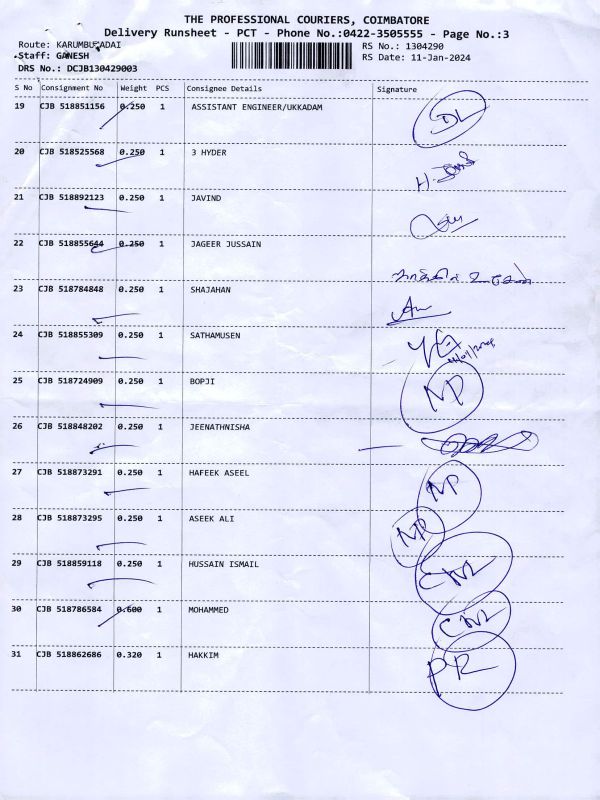 THE PROFESSIONAL COURIERS, COIMBATORE
Delivery Runsheet - PCT - Phone No.:0422-3505555 - Page No.:3
Route: KARUMBUKADAI RS No.: 1304290
Staff: GANESH RS Date: 11-Jan-2024
DRS No.: DCJB130429003
S No Consignment No Weight PCS Consignee Details Signature
19 CJB 518851156 0.250 1 ASSISTANT ENGINEER/UKKADAM DL
20 CJB 518525568 0.250 1 3 HYDER
21 CJB 518892123 0.250 1 JAVIND
22 CJB 518855644 0.250 1 JAGEER JUSSAIN
23 CJB 518784848 0.250 1 SHAJAHAN
24 CJB 518855309 0.250 1 SATHAMUSEN
25 CJB 518724909 0.250 1 BOPJI NP
26 CJB 518848202 0.250 1 JEENATHNISHA
27 CJB 518873291 0.250 1 HAFEEK ASEEL NP
28 CJB 518873295 0.250 1 ASEEK ALI NP
29 CJB 518859118 0.250 1 HUSSAIN ISMAIL CNL
30 CJB 518786584 0.600 1 MOHAMMED CNL
31 CJB 518862686 0.320 1 HAKKIM PR